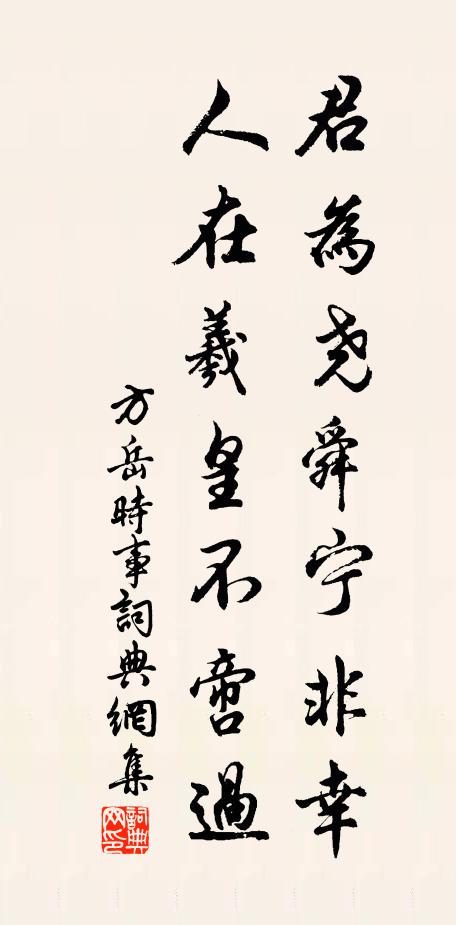 君為尧舜宁非幸
人在羲皇不啻過
方岳時事詞典網集
詞典網印